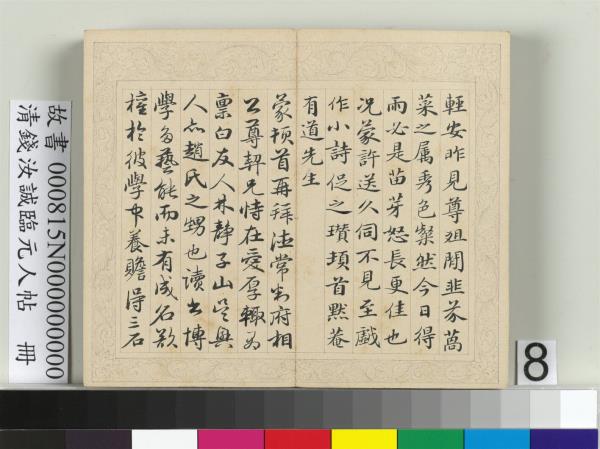 輕安昨見尊俎間韭芥萵
菜之属秀色粲然今日得
雨必是苗芽怒長更佳也
况蒙許送久伺不見至戲
作小詩促之瓚頓首默菴
有道先生
蒙頓首再拜法常判府相
公尊契兄恃在愛厚輒為
禀白友人林静子山吴興
人亦趙氏之甥也讀書博
學多藝能而未有成名欲
権於彼學中養贍得三石
故書 000815N000000000
清錢汝誠臨元人帖 冊
8